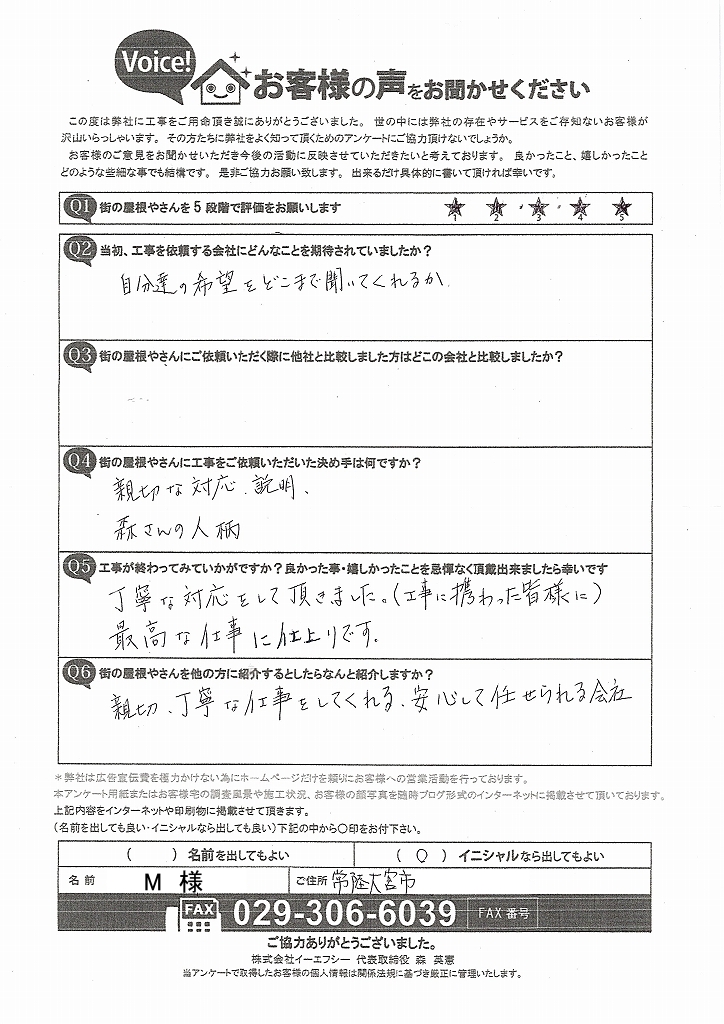 Voice! お客様の声をお聞かせください
この度は弊社に工事をご用命頂き誠にありがとうございました。 世の中には弊社の存在やサービスをご存知ないお客様が
沢山いらっしゃいます。 その方たちに弊社をよく知って頂くためのアンケートにご協力頂けないでしょうか。
お客様のご意見をお聞かせいただき今後の活動に反映させていただきたいと考えております。 良かったこと、嬉しかったこと
どのような些細な事でも結構です。 是非ご協力お願い致します。 出来るだけ具体的に書いて頂ければ幸いです。
Q1 街の屋根やさんを5段階で評価をお願いします
1 2 3 4 5
Q2 当初、工事を依頼する会社にどんなことを期待されていましたか？
自分達の希望をどこまで聞いてくれるか
Q3 街の屋根やさんにご依頼いただく際に他社と比較しました方はどこの会社と比較しましたか？
Q4 街の屋根やさんに工事をご依頼いただいた決め手は何ですか？
親切な対応、説明、
森さんの人柄
Q5 工事が終わってみていかがですか？良かった事・嬉しかったことを忌憚なく頂戴出来ましたら幸いです
丁寧な対応をして頂きました。(工事に携わった皆様に)
最高な仕事に仕上りです。
Q6 街の屋根やさんを他の方に紹介するとしたらなんと紹介しますか？
親切、丁寧な仕事をしてくれる、安心して任せられる会社
＊弊社は広告宣伝費を極力かけない為にホームページだけを頼りにお客様への営業活動を行っております。
本アンケート用紙またはお客様宅の調査風景や施工状況、お客様の顔写真を随時ブログ形式のインターネットに掲載させて頂いております。
上記内容をインターネットや印刷物に掲載させて頂きます。
（名前を出しても良い・イニシャルなら出しても良い）下記の中から〇印をお付下さい。
（　　）名前を出してもよい （　〇　）イニシャルなら出してもよい
名前 M 様 ご住所 常陸大宮市
FAX 029-306-6039 FAX 番号
ご協力ありがとうございました。
株式会社イーエフシー 代表取締役 森 英憲
当アンケートで取得したお客様の個人情報は関係法規に基づき厳正に管理いたします。